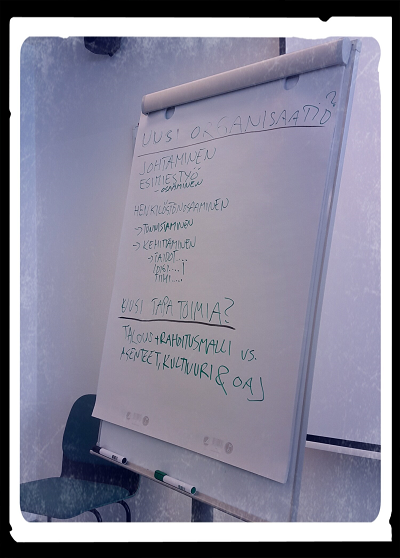 UUSI ORGANISAATIO?
JOHTAMINEN
ESIMIESTYÖ
- OSAAMINEN
HENKILÖSTÖNOSAAMINEN
→ TUNNISTAMINEN
→ KEHITTÄMINEN
→ TAIDOT....
TIIMI....
UUSI TAPA TOIMIA?
TALOUS + RAHOITUSMALLI VS.
ASENTEET, KULTTUURI & OAJ